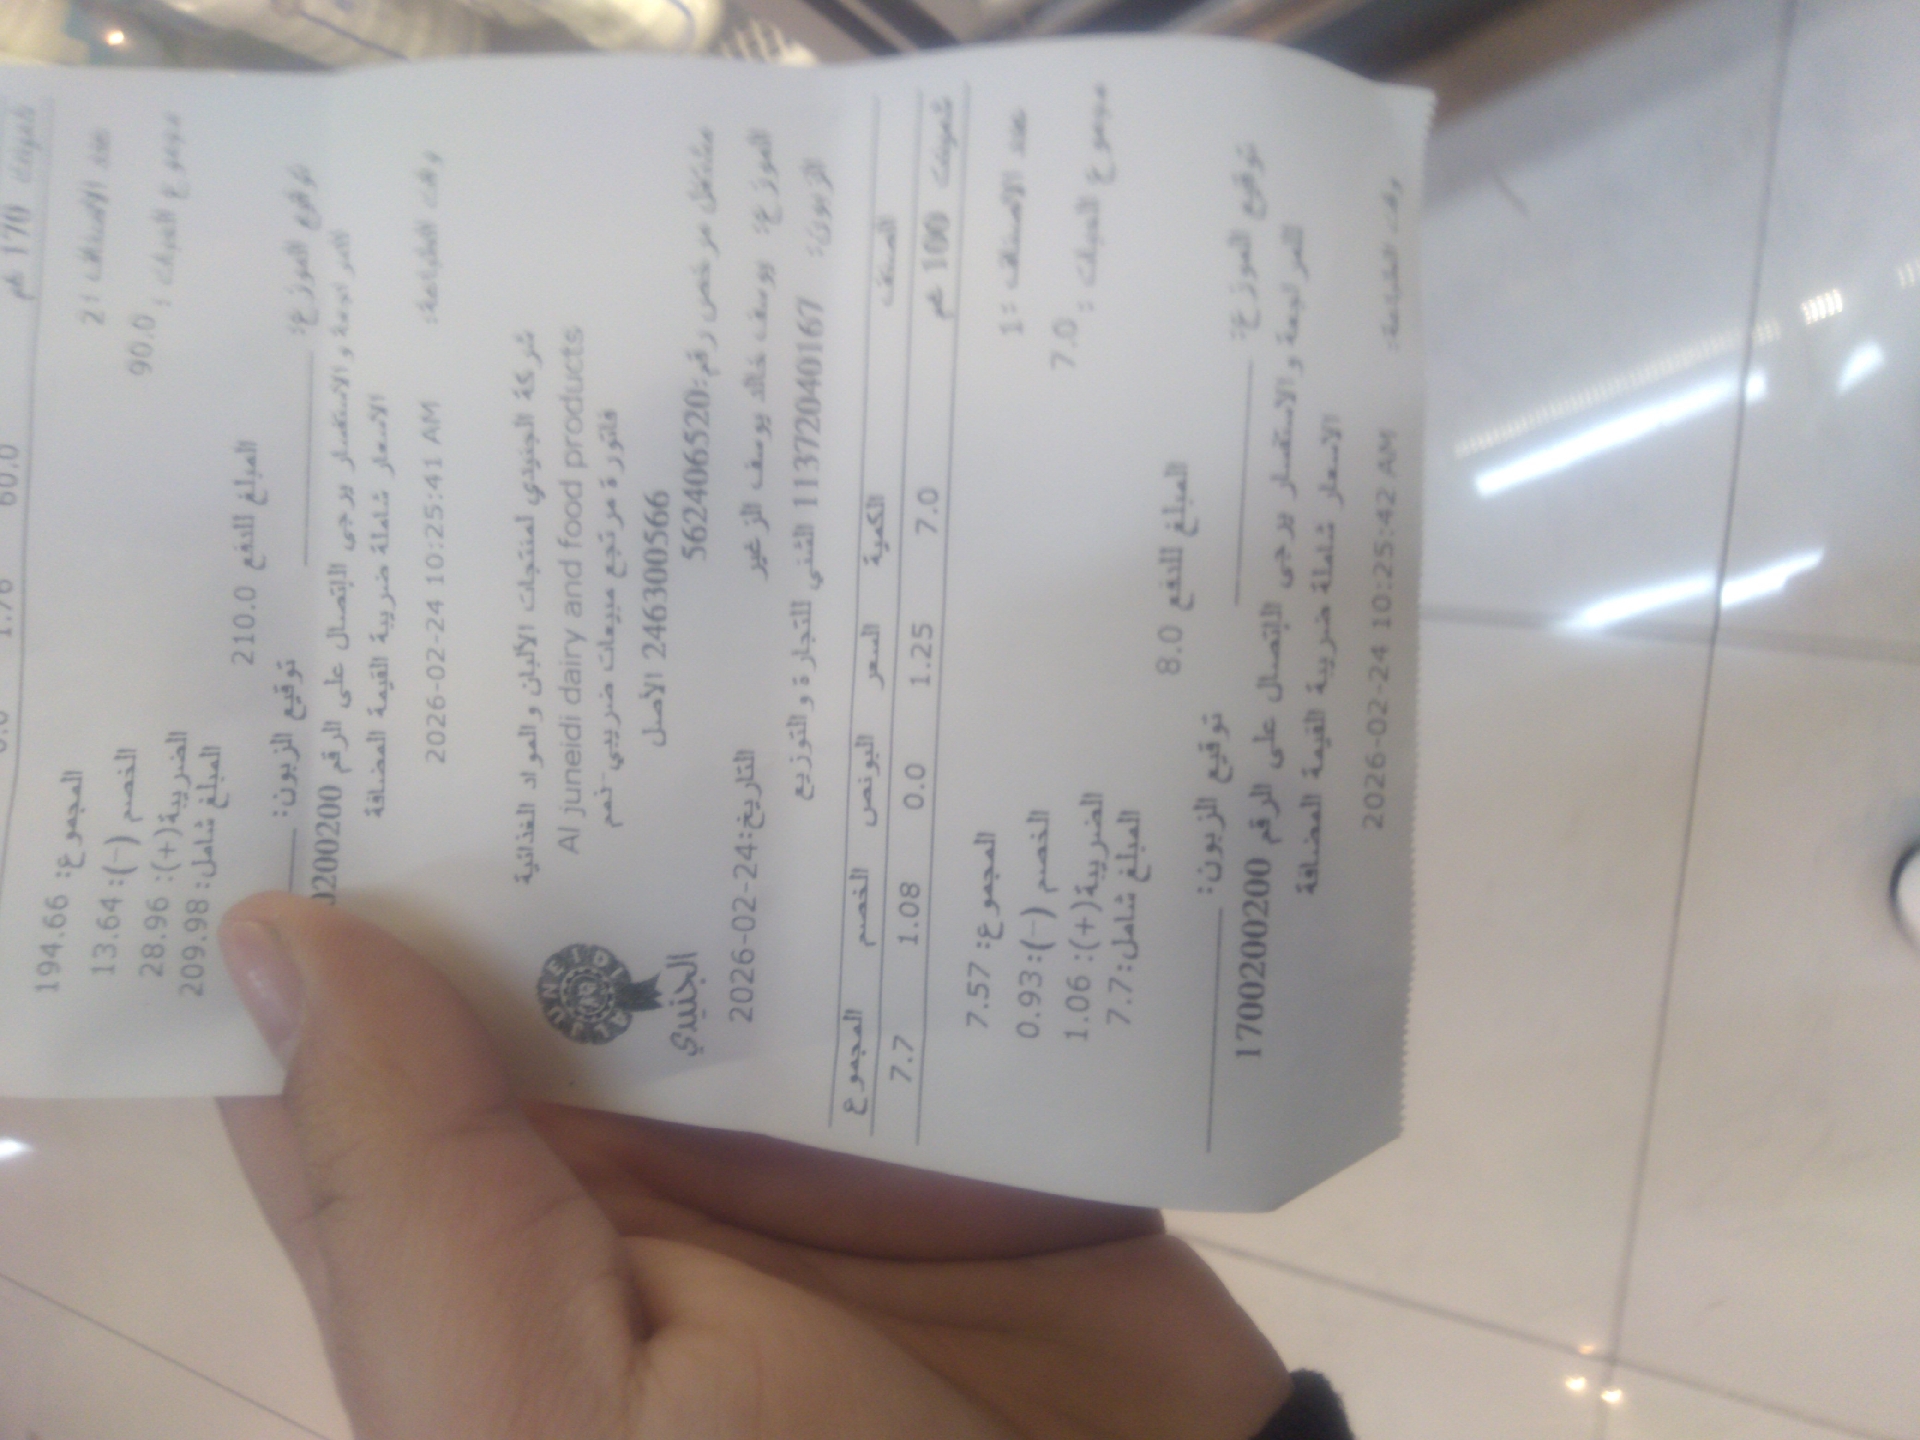 شمينت 170 غم 60.0 1.76 0.0
194.66 :المجموع
عدد الاصناف :2
13.64 :(-) الخصم
مجموع الحبات : 90.0
28.96 :(+)الضريبة
209.98 :المبلغ شامل
المبلغ للدفع 210.0
توقيع الموزع: توقيع الزبون:
للمراجعة و الاستفسار يرجى الاتصال على الرقم 200200
الاسعار شاملة ضريبة القيمة المضافة
وقت الطباعة: 2026-02-24 10:25:41 AM
شركة الجنيدي لمنتجات الألبان والمواد الغذائية
Al juneidi dairy and food products
فاتورة مرتجع مبيعات ضريبي-نعم
246300566 الأصل
AL JUNEIDI
الجنيدي
مشتغل مرخص رقم:562406520
الموزع: يوسف خالد يوسف الزغير
التاريخ:2026-02-24
الزبون: 11372040167 التنمي للتجارة و التوزيع
الصنف الكمية السعر البونص الخصم المجموع
شمينت 100 غم 7.0 1.25 0.0 1.08 7.7
7.57 :المجموع
عدد الاصناف :1
0.93 :(-) الخصم
مجموع الحبات : 7.0
1.06 :(+)الضريبة
7.7 :المبلغ شامل
المبلغ للدفع 8.0
توقيع الموزع: توقيع الزبون:
للمراجعة و الاستفسار يرجى الاتصال على الرقم 1700200200
الاسعار شاملة ضريبة القيمة المضافة
وقت الطباعة: 2026-02-24 10:25:42 AM